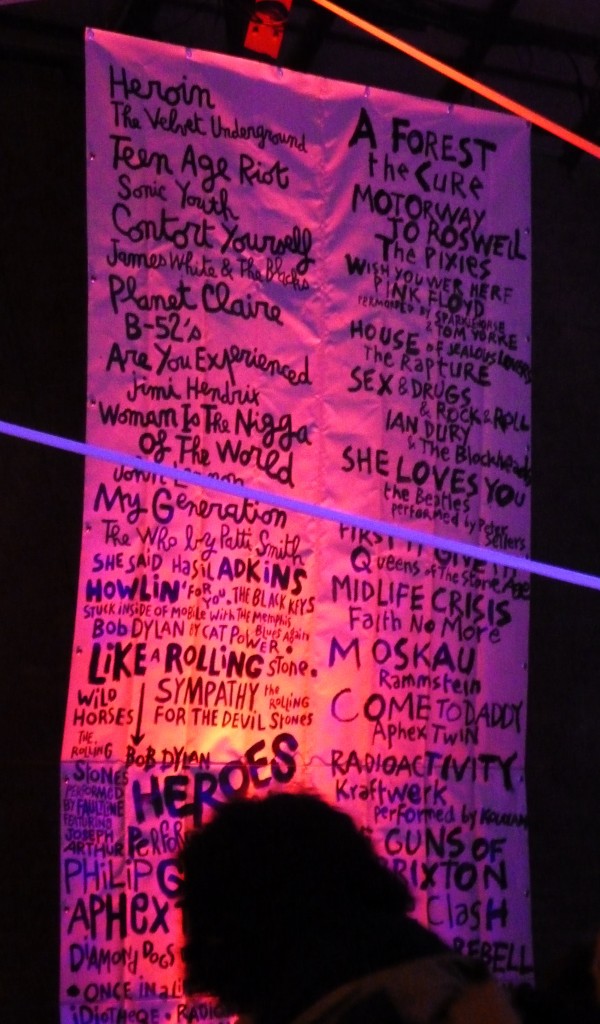 Heroin
The Velvet Underground
Teen Age Riot
Sonic Youth
Contort Yourself
James White & The Blacks
Planet Claire
B-52's
Are You Experienced
Jimi Hendrix
Woman Is The Nigga
Of The World
John Lennon
My Generation
The Who by Patti Smith
SHE SAID HASIL ADKINS
HOWLIN' FOR YOU. THE BLACK KEYS
STUCK INSIDE OF MOBILE WITH THE MEMPHIS
Blues Again
Bob DYLAN BY CAT POWER.
LIKE A ROLLING STONE.
WILD
HORSES
SYMPATHY
FOR THE DEVIL
THE ROLLING
STONES
THE
ROLLING
STONES
BOB DYLAN
PERFORMED
BY FAULTLINE
FEATURING
JOSEPH
ARTHUR
HEROES
Perfo
PHILIP G
APHEX
DIAMOND DOGS
• ONCE IN A LI
IDIOTHEQE • RADIO
A FOREST
the CURE
MOTORWAY
TO ROSWELL
The PIXIES
WISH YOU WER HERE
PINK FLOYD
PERMORDED BY SPARKLEHORSE
& TOM YORRE
HOUSE OF JEALOUS LOVERS
The RAPTURE
SEX & DRUGS
& ROCK & ROLL
IAN DURY
& The Blockheads
SHE LOVES YOU
the Beatles
performed by Peter
Sellers
FIRST IT GIVETH
Queens of The Stone Age
MIDLIFE CRISIS
Faith No More
MOSKAU
Rammstein
COME TO DADDY
Aphex Twin
RADIOACTIVITY.
Kraftwerk
performed by
GUNS OF
BRIXTON
Clash
REBELL